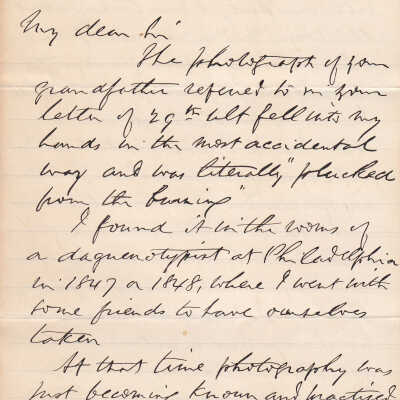 My dear Sir
The photograph of your
grandfather referred to in your
letter of 29th ult fell into my
hands in the most accidental
way and was literally "plucked
from the burning"
I found it in the rooms of
a daguerrotypist at Philadelphia
in 1847 or 1848, where I went with
some friends to have ourselves
taken
At that time photography was
just becoming known and practised